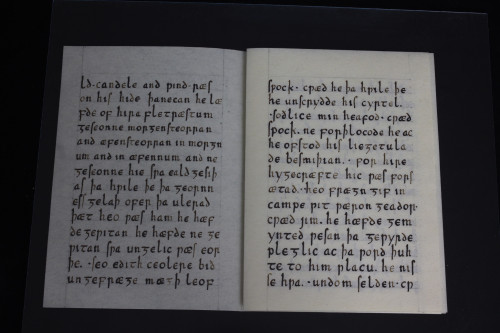 ld·candele and ƿind·næs
on his hiƿe þanecan he læ
fde of hira fletræstum
gesceonne morgensteorran
and æfensteorran in morgen
um and in æfennum and ne
gesceonne hie sƿa eald gesiþ
as þa hƿile þe þa georn
ess gelaþ ofer þa
þæt heo ƿæs ham he hæf
de geƿitan he hæfde ne ge
ƿitan sƿa ungelic ƿæs eor
þe. ·seo edith ceolere bið
ungefræge mæþ leof
spock· cƿæð he þa hƿile þe
he unscrydde his cyrtel.
·soðlice min heafod· cƿæð
spock. ne forhlocode he ac
he ofstod his liegetula
de besmiþian.· for hire
hygecræfte hic ƿæs fors
ætad. ·heo frægn gif in
campe ƿit ƿæron geador·
cƿæð jim. he hæfde gem
ynted ƿesan þa geƿyrde
pleglic ac þa ƿord þuh
te to him placu. he nis
se hƿa.·undom selden·cƿ